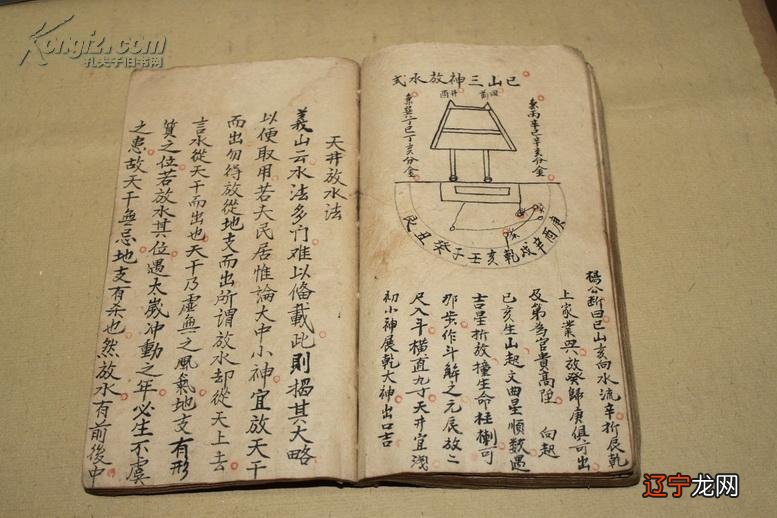 巳山三神放水式
兼丙辛巳辛亥分金
兼巽丁巳丁亥分金
庚酉辛戌乾亥壬子癸丑艮
楊公斷曰巳山亥向水流辛折辰乾
上家業興放癸歸庚俱可出
及第為官貴高陞 向起
巳亥生山起文曲星順數遇
吉星折放撞生命柱可
那步作斗解之元辰放二
尺入斗橫直九寸天井宜淺
初小神辰乾大神出口吉
天井放水法
義山云水法多门难以俻載此則揭其大略
以便取用若夫民居惟論大中小神宜放天干
而出勿得放從地支而出所謂放水却從天上去
言水從天干而出也天干乃虛無之風氣地支有形
質之位若放水其位遇太歲冲動之年必生不虞
之患故天干無忌地支有杀也然放水有前後中
Kongfz.com
孔夫子旧书网
辽宁龙网